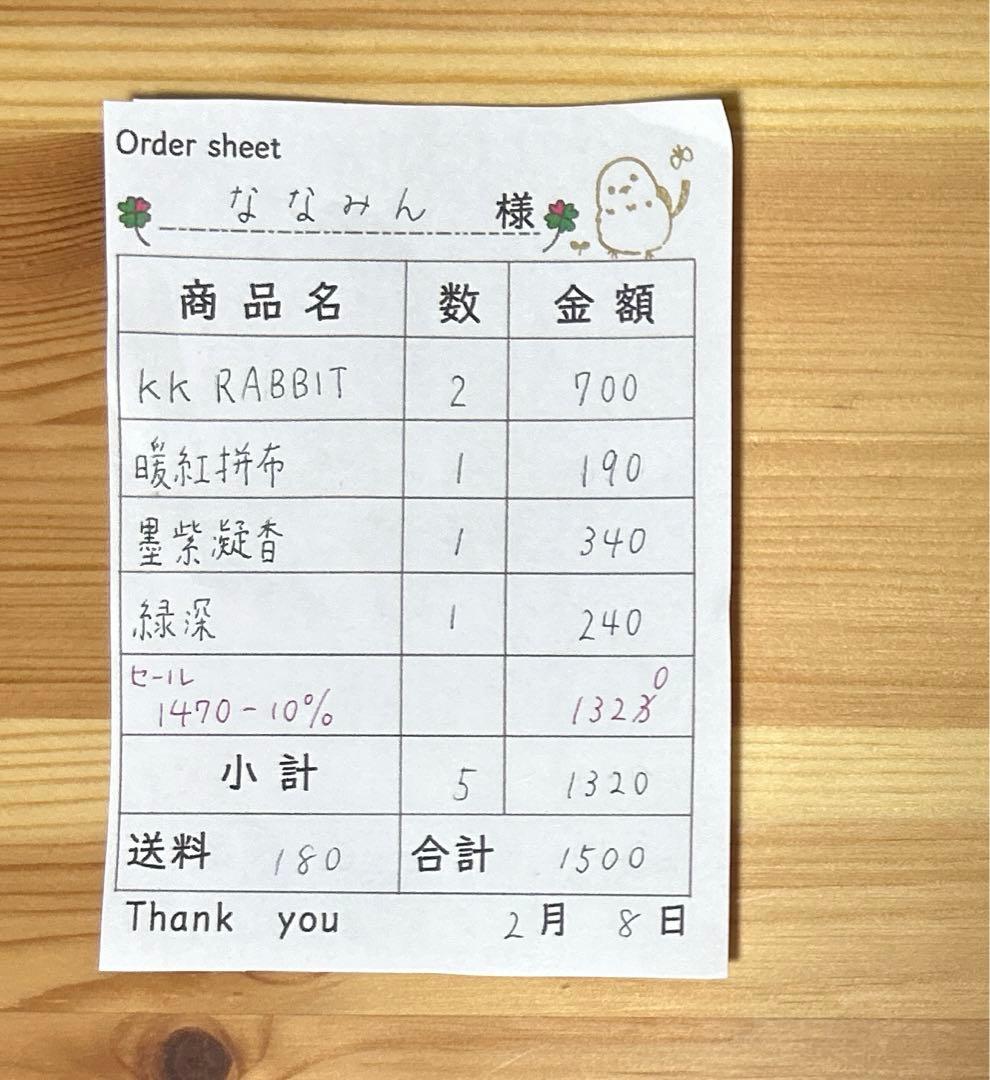 Order sheet
ななみん 様
商品名 数 金額
KK RABBIT 2 700
暖紅拼布 1 190
墨紫凝香 1 340
緑深 1 240
セール
0
1470-10% 1323
小計 5 1320
送料 180 合計 1500
Thank you 2月 8日